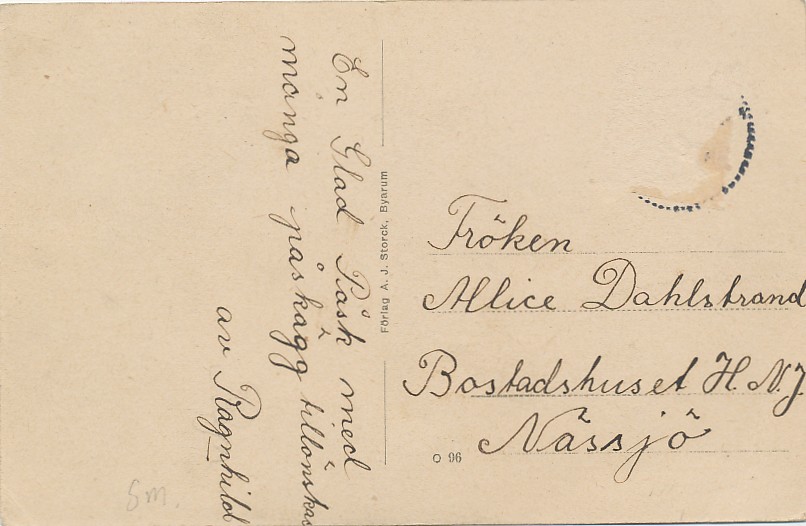 En Glad Påsk med
många påskägg tillönskas
av Ragnhild
Förlag A. J. Storck, Byarum
Fröken
Allice Dahlstrand
Bostadshuset H. N. J.
Nässjö
O 96
Sm.